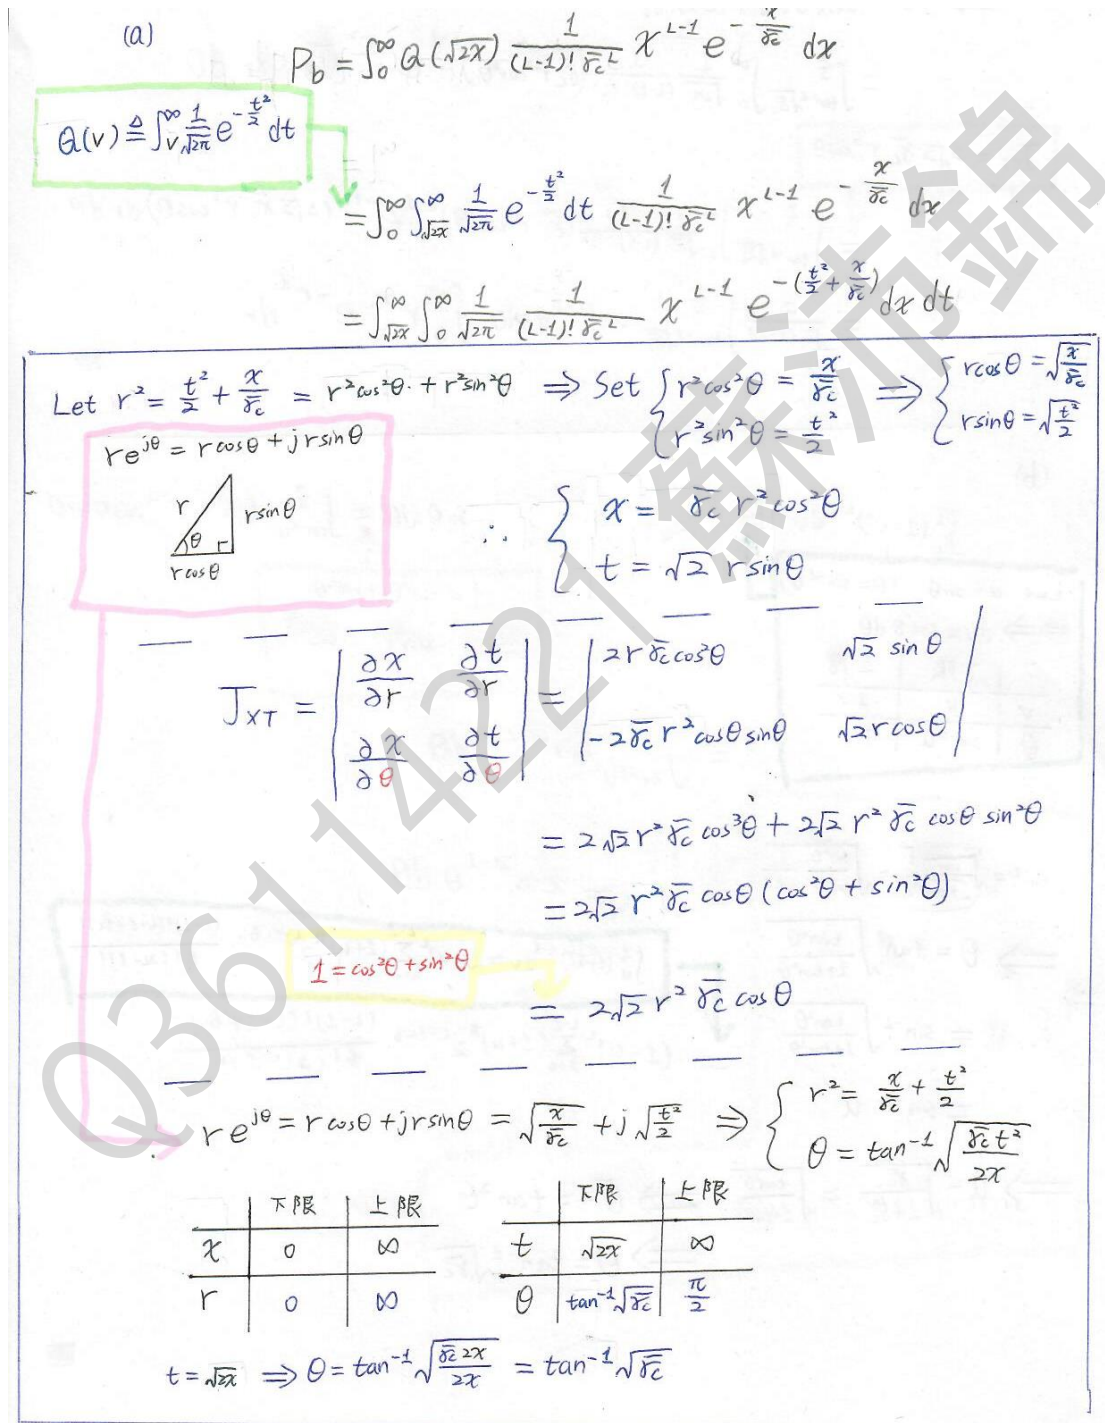 (a)
P_b = ∫_0^∞ Q(√(2x)) 1/((L-1)! γ̄_c^L) x^(L-1) e^(-x/γ̄_c) dx
Q(v) ≜ ∫_v^∞ 1/√(2π) e^(-t²/2) dt
= ∫_0^∞ ∫_√(2x)^∞ 1/√(2π) e^(-t²/2) dt 1/((L-1)! γ̄_c^L) x^(L-1) e^(-x/γ̄_c) dx
= ∫_√(2x)^∞ ∫_0^∞ 1/√(2π) 1/((L-1)! γ̄_c^L) x^(L-1) e^(-(t²/2 + x/γ̄_c)) dx dt
Let r² = t²/2 + x/γ̄_c = r²cos²θ + r²sin²θ ⇒ Set { r²cos²θ = x/γ̄_c, r²sin²θ = t²/2 ⇒ { rcosθ = √(x/γ̄_c), rsinθ = √(t²/2)
re^(jθ) = rcosθ + jrsinθ
r rsinθ
θ
rcosθ
∴ { x = γ̄_c r²cos²θ
t = √2 rsinθ
J_XT = | ∂x/∂r ∂t/∂r | = | 2rγ̄_c cos²θ √2 sinθ |
| ∂x/∂θ ∂t/∂θ | | -2γ̄_c r²cosθsinθ √2rcosθ |
= 2√2 r² γ̄_c cos³θ + 2√2 r² γ̄_c cosθ sin²θ
= 2√2 r² γ̄_c cosθ (cos²θ + sin²θ)
1 = cos²θ + sin²θ
= 2√2 r² γ̄_c cosθ
re^(jθ) = rcosθ + jrsinθ = √(x/γ̄_c) + j√(t²/2) ⇒ { r² = x/γ̄_c + t²/2
θ = tan⁻¹√(γ̄_c t²/2x)
下限 上限 下限 上限
x 0 ∞ t √(2x) ∞
r 0 ∞ θ tan⁻¹√γ̄_c π/2
t = √(2x) ⇒ θ = tan⁻¹√(γ̄_c 2x/2x) = tan⁻¹√γ̄_c
Q3611421 蘇沛錦